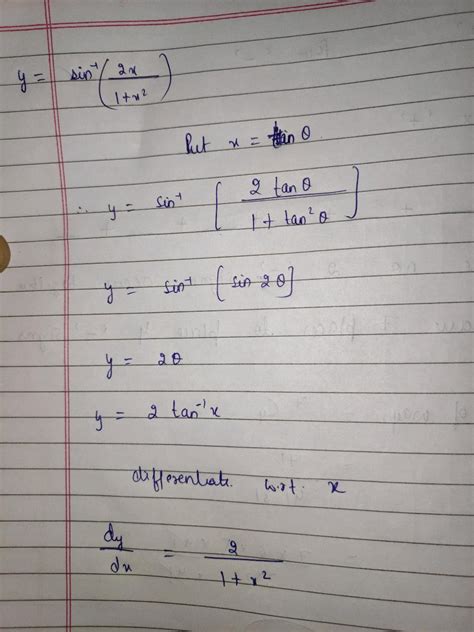 y = sin⁻¹(2x/1+x²)
Put x = tan θ
∴ y = sin⁻¹ [2 tan θ / 1 + tan² θ]
y = sin⁻¹ [sin 2θ]
y = 2θ
y = 2 tan⁻¹ x
differentiate w.r.t. x
dy/dx = 2/1+x²